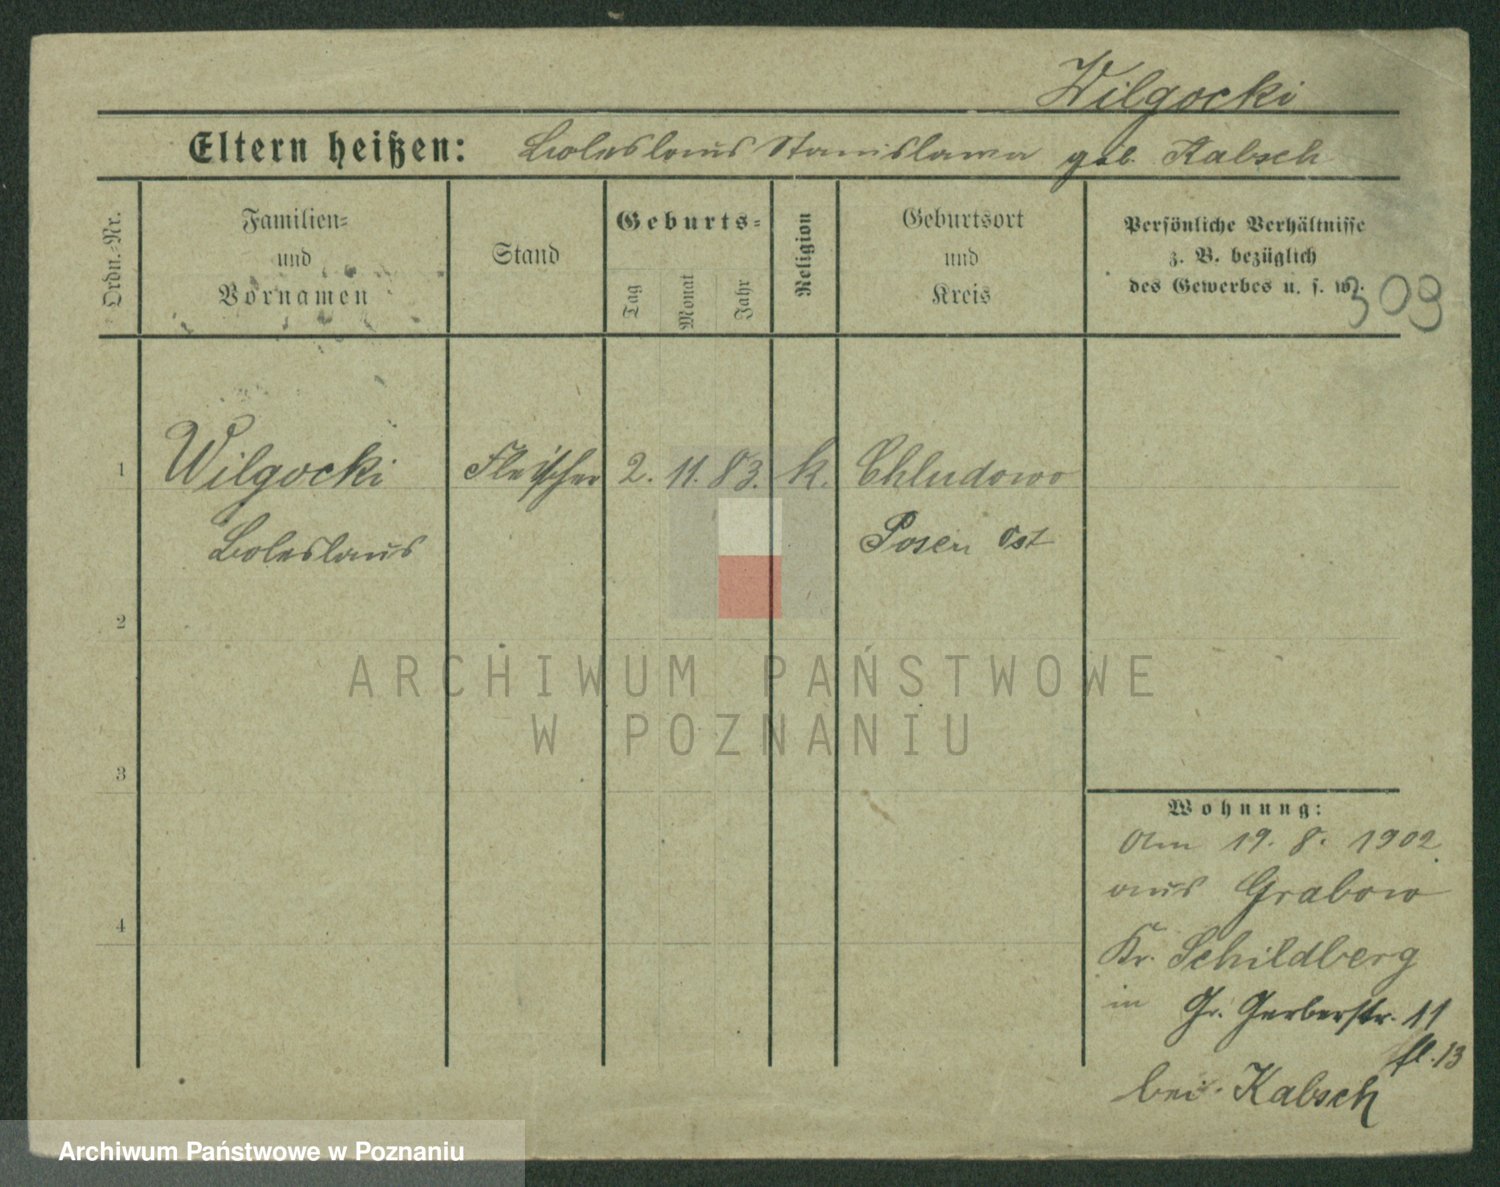 Wilgocki
Eltern heißen: Boleslaus Stanislawa geb. Kabsch
Ordn.-Nr.
Familien-
und
Vornamen
Stand
Geburts-
Tag
Monat
Jahr
Religion
Geburtsort
und
Kreis
Persönliche Verhältnisse
z. B. bezüglich
des Gewerbes u. s. w.
309
1 Wilgocki Fleischer 2. 11. 83. k. Chludowo
Boleslaus Posen Ost
2
3
4
Wohnung:
Am 19. 8. 1902
aus Grabow
Kr. Schildberg
in Gr. Gerberstr. 11
fl. 13
bei Kabsch
ARCHIWUM PAŃSTWOWE
W POZNANIU
Archiwum Państwowe w Poznaniu